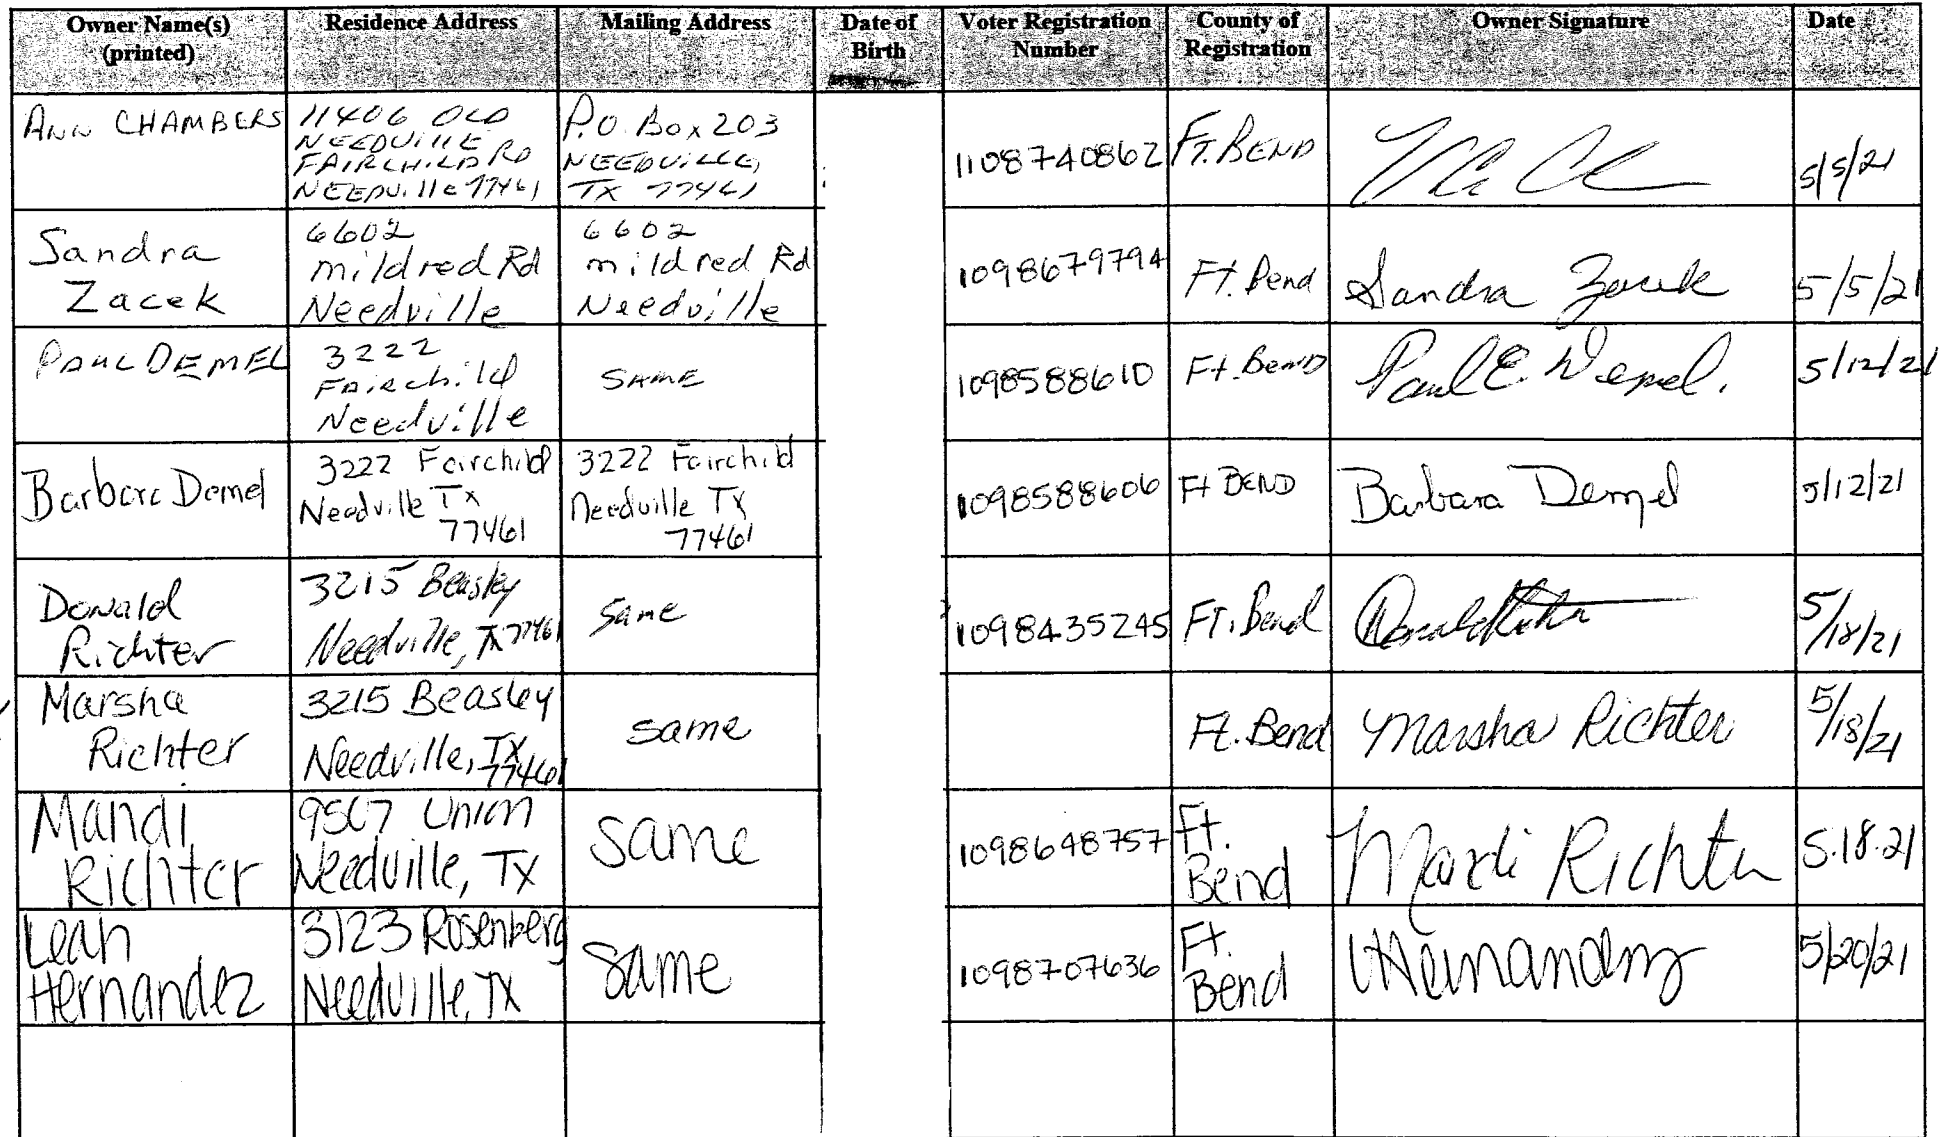 Owner Name(s)
(printed)
Residence Address
Mailing Address
Date of
Birth
Voter Registration
Number
County of
Registration
Owner Signature
Date
ANN CHAMBERS
11406 OLD
NEEDVILLE
FAIRCHILD RD
NEEDVIlle 77461
P.O. Box 203
NEEDVILLE,
TX 77461
1108740862
FT. BEND
5/5/21
Sandra
Zacek
6602
mildred Rd
Needville
6602
mildred Rd
Needville
1098679794
Ft. Bend
Sandra Zacek
5/5/21
PAUL DEMEL
3222
FAirchild
Needville
SAME
1098588610
Ft. Bend
Paul E. Demel.
5/12/21
Barbara Demel
3222 Fairchild
Needville Tx
77461
3222 Fairchild
Needville Tx
77461
1098588606
Ft BEND
Barbara Demel
5/12/21
Donald
Richter
3215 Beasley
Needville, Tx 77461
Same
1098435245
FT. Bend
Donald Richter
5/18/21
Marsha
Richter
3215 Beasley
Needville, TX
77461
same
Ft. Bend
Marsha Richter
5/18/21
Mandi
Richter
9507 Union
Needville, Tx
same
1098648757
Ft.
Bend
Mandi Richter
5.18.21
Leah
Hernandez
3123 Rosenberg
Needville, TX
same
1098707636
Ft.
Bend
LHernandez
5/20/21